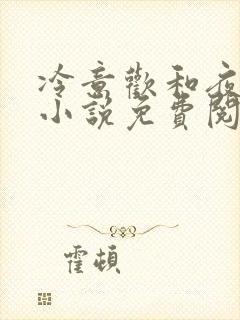 冷意歡和夜
小說免費閱
霍頓